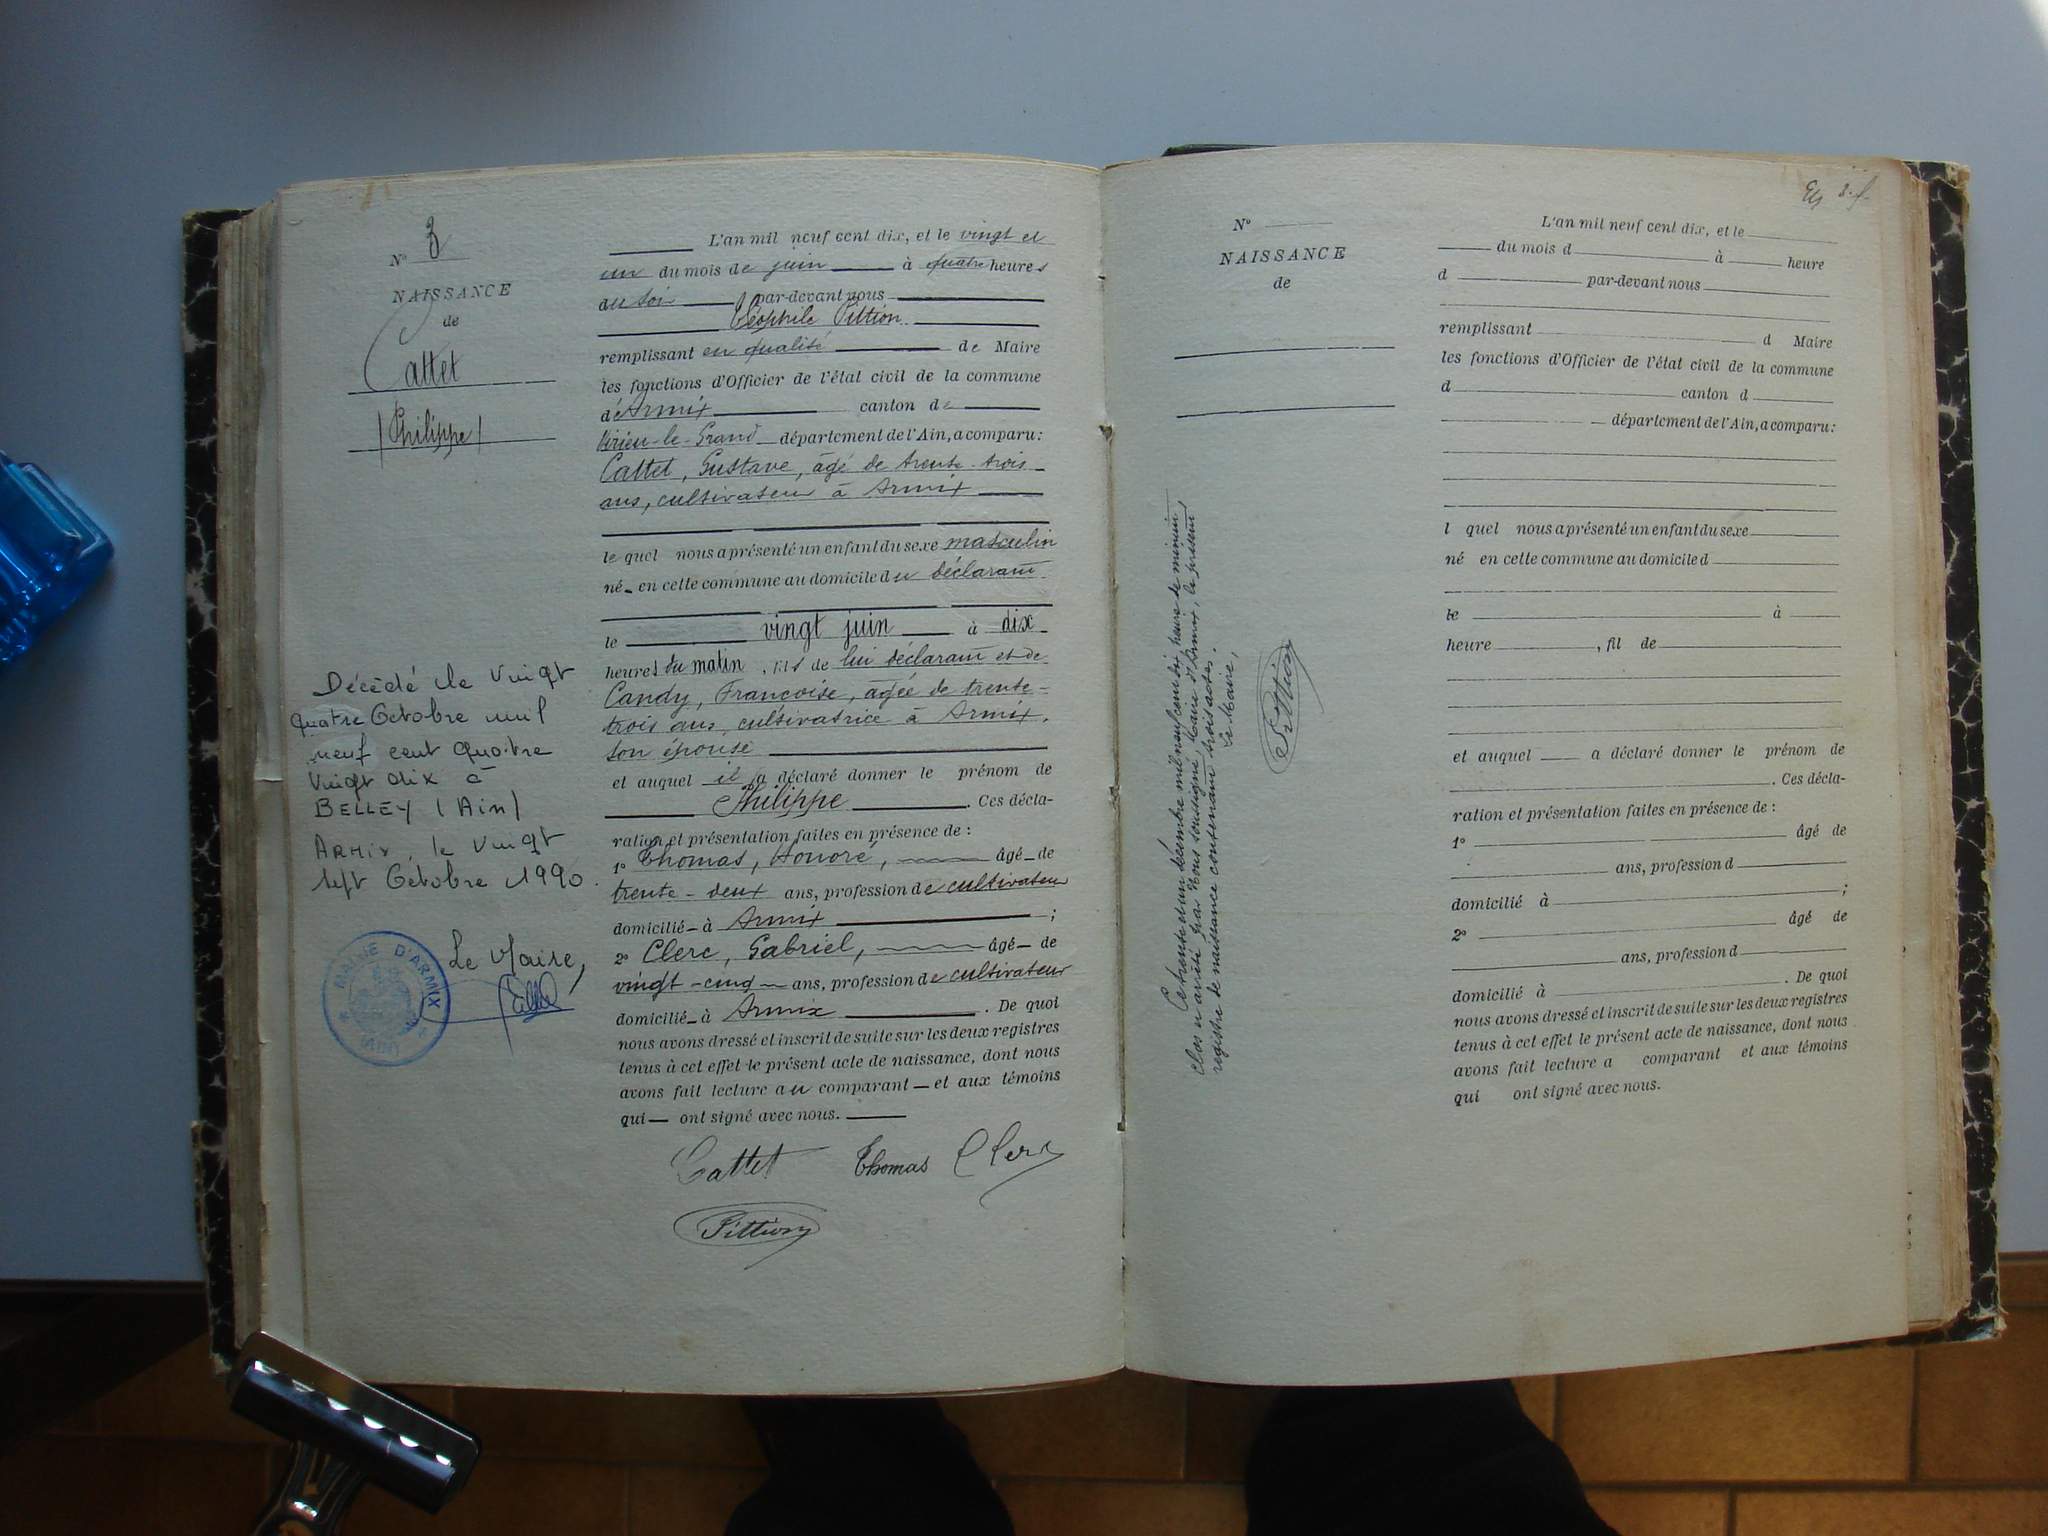 N° 3
NAISSANCE
de
Cattet
(Philippe)
Décédé le Vingt
quatre Octobre mil
neuf cent quatre
Vingt dix à
BELLEY (Ain)
ARMIX, le Vingt
sept Octobre 1990.
Le Maire,
MAIRIE D'ARMIX
(AIN)
L'an mil neuf cent dix, et le vingt et
un du mois de juin à quatre heures
du soir par-devant nous
Théophile Pittion
remplissant en qualité de Maire
les fonctions d'Officier de l'état civil de la commune
d'Armix canton de
Virieu-le-Grand département de l'Ain, a comparu:
Cattet, Gustave, âgé de trente-trois
ans, cultivateur à Armix
le quel nous a présenté un enfant du sexe masculin
né en cette commune au domicile du déclarant
le vingt juin à dix
heures du matin, fils de lui déclarant et de
Candy, Françoise, âgée de trente-
trois ans, cultivatrice à Armix,
son épouse
et auquel il a déclaré donner le prénom de
Philippe. Ces décla-
ration et présentation faites en présence de :
1° Thomas, Honoré, âgé de
trente-deux ans, profession de cultivateur
domicilié à Armix ;
2° Clerc, Gabriel, âgé de
vingt-cinq ans, profession de cultivateur
domicilié à Armix. De quoi
nous avons dressé et inscrit de suite sur les deux registres
tenus à cet effet le présent acte de naissance, dont nous
avons fait lecture au comparant et aux témoins
qui ont signé avec nous.
Cattet Thomas Clerc
Pittion
N°
NAISSANCE
de
Ce trente et un décembre mil neuf cent dix, heure de minuit,
clos et arrêté par Nous soussigné, Maire d'Armix, le présent
registre de naissance contenant trois actes.
Le Maire,
Pittion
L'an mil neuf cent dix, et le
du mois d à heure
d par-devant nous
remplissant d Maire
les fonctions d'Officier de l'état civil de la commune
d canton d
département de l'Ain, a comparu:
l quel nous a présenté un enfant du sexe
né en cette commune au domicile d
le à
heure , fil de
et auquel a déclaré donner le prénom de
. Ces décla-
ration et présentation faites en présence de :
1° âgé de
ans, profession d
domicilié à ;
2° âgé de
ans, profession d
domicilié à . De quoi
nous avons dressé et inscrit de suite sur les deux registres
tenus à cet effet le présent acte de naissance, dont nous
avons fait lecture a comparant et aux témoins
qui ont signé avec nous.